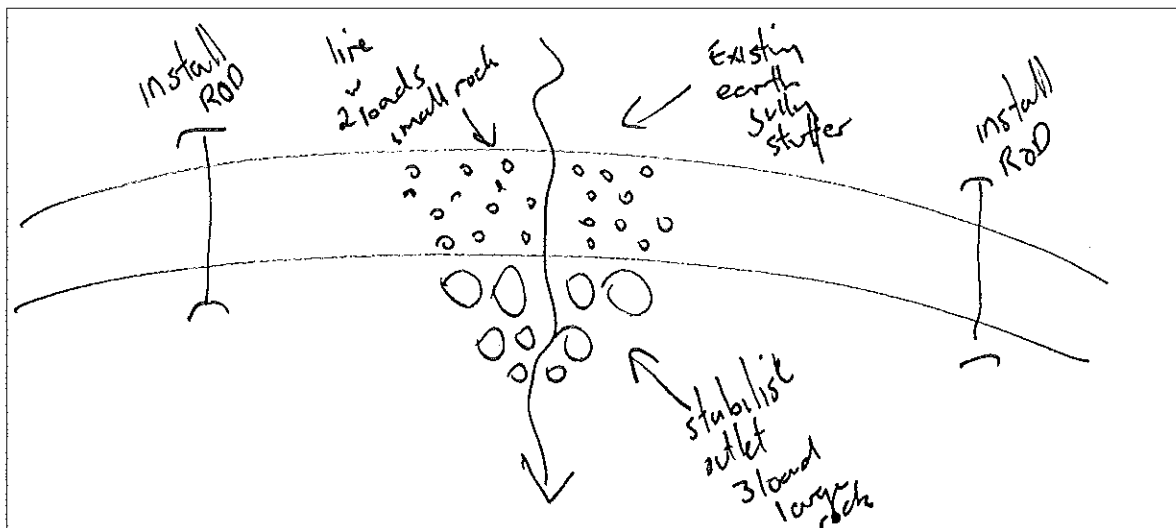 install
ROD
line
w
2 loads
small rock
Existing
earth
gully
stuffer
install
ROD
stabilise
outlet
3 load
large
rock